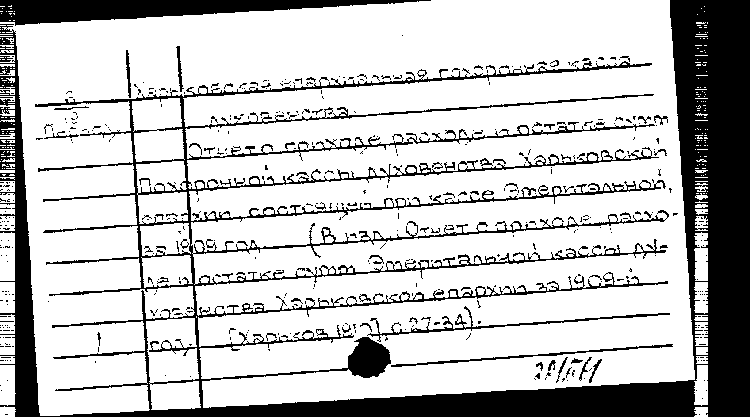 Харьковская епархиальная похоронная касса
6/19
духовенства.
Период.
Отчет о приходе, расходе и остатке сумм
Похоронной кассы духовенства Харьковской
епархии, состоящей при кассе Эмеритальной,
за 1909 год. (В изд.: Отчет о приходе, расхо-
де и остатке сумм Эмеритальной кассы ду-
ховенства Харьковской епархии за 1909-й
1 год. [Харьков, 1910], с. 27-34).